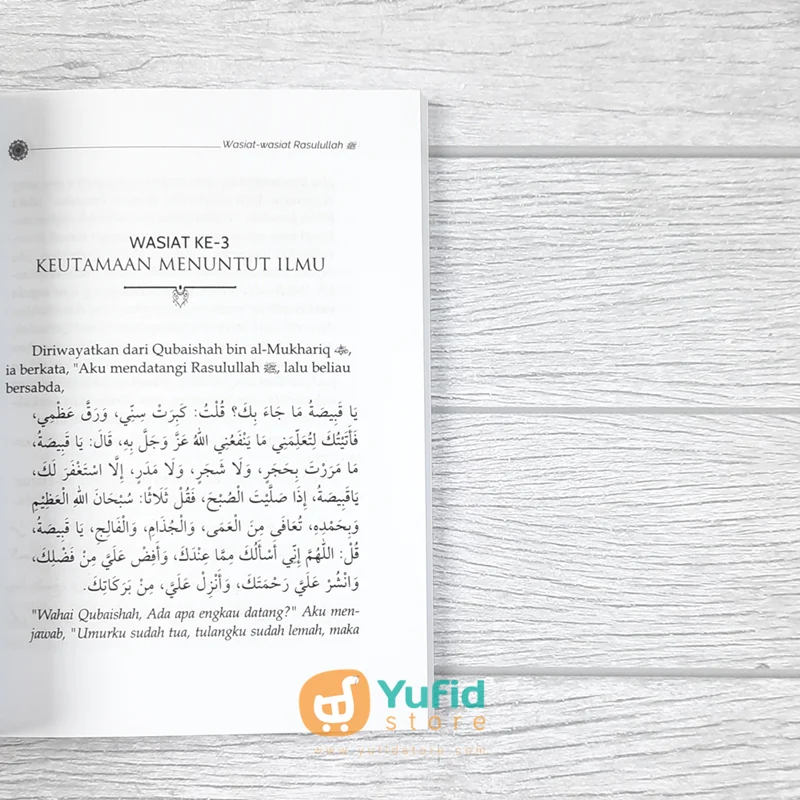 Wasiat-wasiat Rasulullah ﷺ
WASIAT KE-3
KEUTAMAAN MENUNTUT ILMU
Diriwayatkan dari Qubaishah bin al-Mukhariq ,
ia berkata, "Aku mendatangi Rasulullah ﷺ, lalu beliau
bersabda,
يَا قَبِيصَةُ مَا جَاءَ بِكَ؟ قُلْتُ: كَبِرَتْ سِنِّي، وَرَقَّ عَظْمِي،
فَأَتَيْتُكَ لِتُعَلِّمَنِي مَا يَنْفَعُنِي اللهُ عَزَّ وَجَلَّ بِهِ، قَالَ: يَا قَبِيصَةُ،
مَا مَرَرْتَ بِحَجَرٍ، وَلَا شَجَرٍ، وَلَا مَدَرٍ، إِلَّا اسْتَغْفَرَ لَكَ،
يَاقَبِيصَةُ، إِذَا صَلَّيْتَ الصُّبْحَ، فَقُلْ ثَلَاثًا: سُبْحَانَ اللهِ الْعَظِيْمِ
وَبِحَمْدِهِ، تُعَافَى مِنَ الْعَمَى، وَالْجُذَامِ، وَالْفَالِجِ، يَا قَبِيصَةُ،
قُلْ: اللَّهُمَّ إِنِّي أَسْأَلُكَ مِمَّا عِنْدَكَ، وَأَفِضْ عَلَيَّ مِنْ فَضْلِكَ،
وَانْشُرْ عَلَيَّ رَحْمَتَكَ، وَأَنْزِلْ عَلَيَّ، مِنْ بَرَكَاتِكَ.
"Wahai Qubaishah, Ada apa engkau datang?" Aku men-
jawab, "Umurku sudah tua, tulangku sudah lemah, maka
Yufid
store